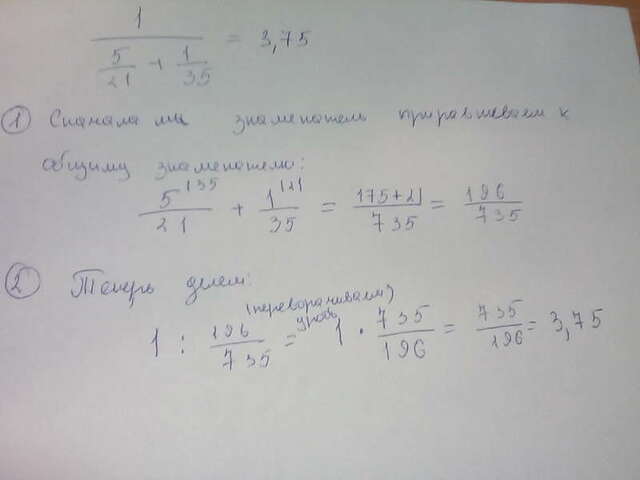 1 / (5/21 + 1/35) = 3,75
① Сначала мы знаменатель приравниваем к
общиму знаменателю:
5^|35 / 21 + 1^|21 / 35 = (175+21) / 735 = 196/735
② Теперь делим:
(переворачиваем)
дробь
1 : 196/735 = 1 · 735/196 = 735/196 = 3,75